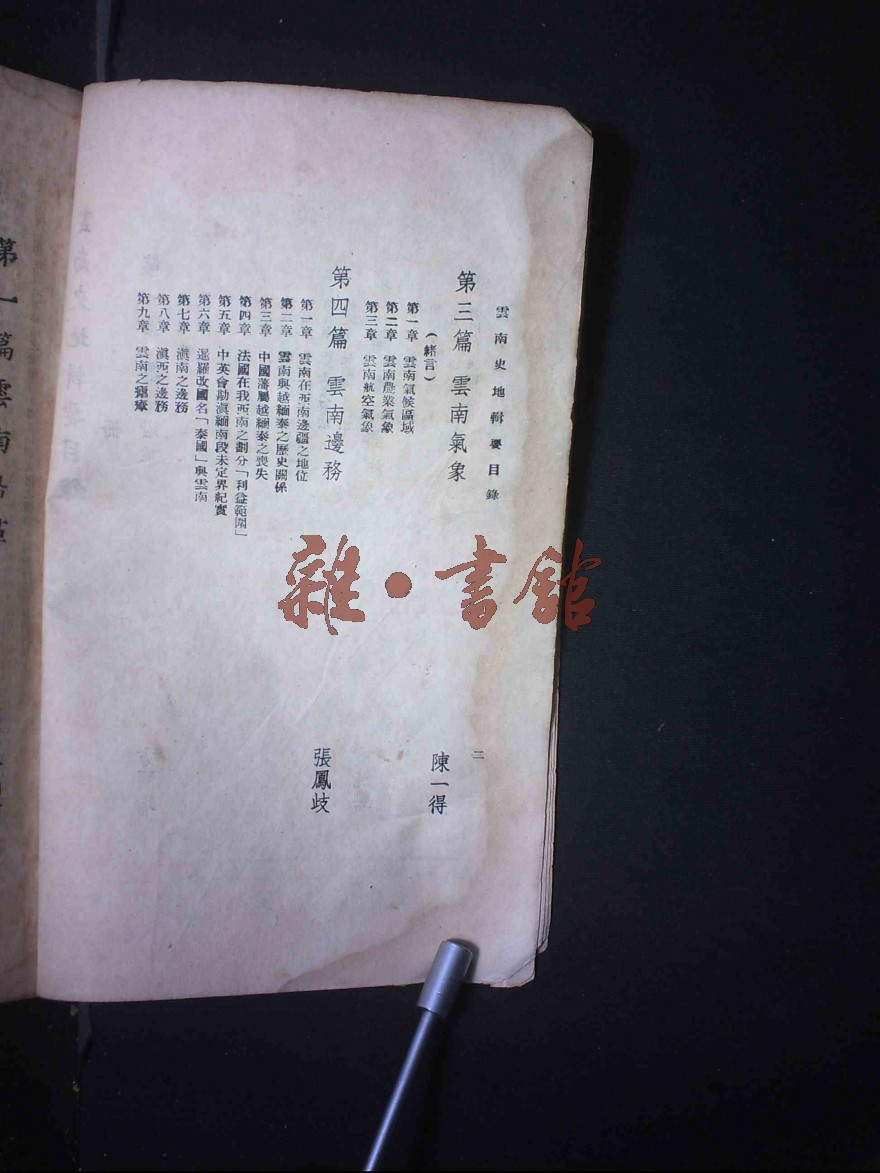 雲南史地輯要目錄
二
第三篇 雲南氣象
陳一得
(緒言)
第一章 雲南氣候區域
第二章 雲南農業氣象
第三章 雲南航空氣象
第四篇 雲南邊務
張鳳歧
第一章 雲南在西南邊疆之地位
第二章 雲南與越緬泰之歷史關係
第三章 中國藩屬越緬泰之喪失
第四章 法國在我西南之劃分「利益範圍」
第五章 中英會勘滇緬南段未定界紀實
第六章 暹羅改國名「泰國」與雲南
第七章 滇南之邊務
第八章 滇西之邊務
第九章 雲南之
第一篇 雲南
雜•書館